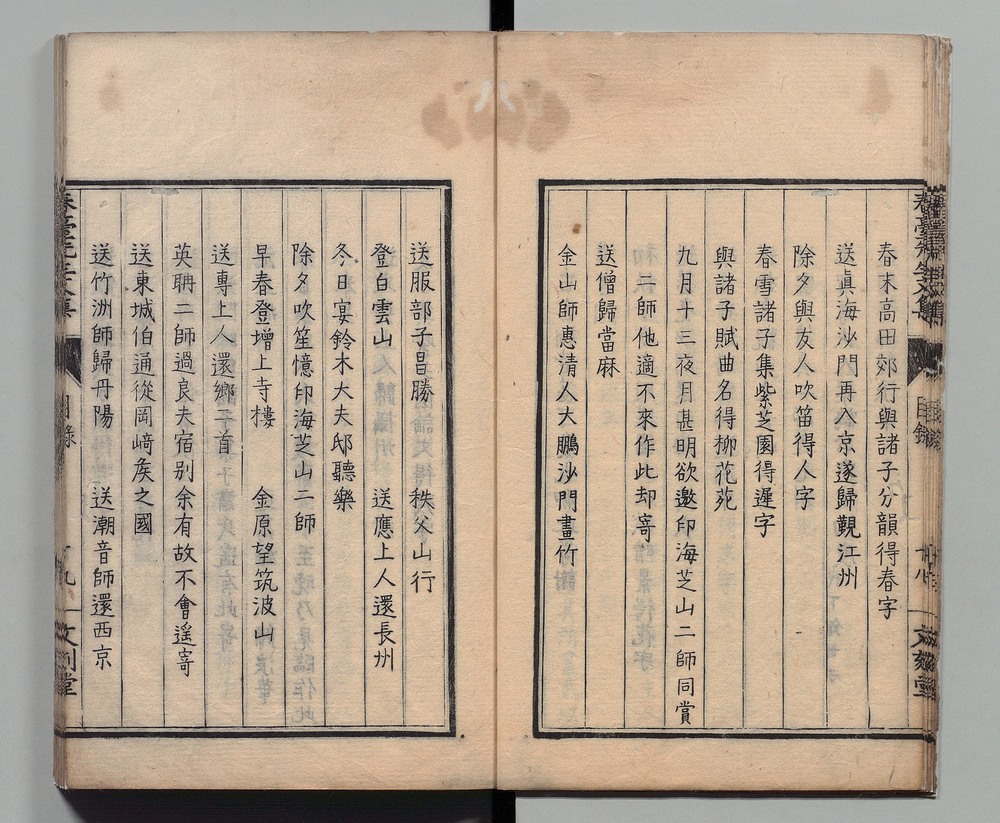 春末高田郊行與諸子分韻得春字
送眞海沙門再入京遂歸覲江州
除夕與友人吹笛得人字
春雪諸子集紫芝園得遲字
與諸子賦曲名得柳花苑
九月十三夜月甚明欲邀印海芝山二師同賞
二師他適不來作此却寄
送僧歸當麻
金山師惠清人大鵬沙門畫竹
送服部子昌勝 秩父山行
登白雲山 送應上人還長州
冬日宴鈴木大夫邸聽樂
除夕吹笙憶印海芝山二師
早春登增上寺樓 金原望筑波山
送專上人還鄉二首
英聃二師過良夫宿別余有故不會遥寄
送東城伯通從岡﨑矦之國
送竹洲師歸丹陽 送潮音師還西京
目錄